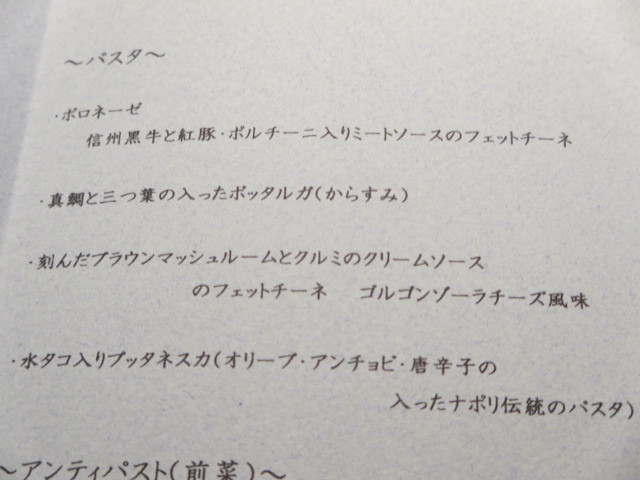 ～パスタ～
・ボロネーゼ
信州黒牛と紅豚・ポルチーニ入りミートソースのフェットチーネ
・真鯛と三つ葉の入ったボッタルガ(からすみ)
・刻んだブラウンマッシュルームとクルミのクリームソース
のフェットチーネ　ゴルゴンゾーラチーズ風味
・水タコ入りプッタネスカ(オリーブ・アンチョビ・唐辛子の
入ったナポリ伝統のパスタ)
～アンティパスト(前菜)～